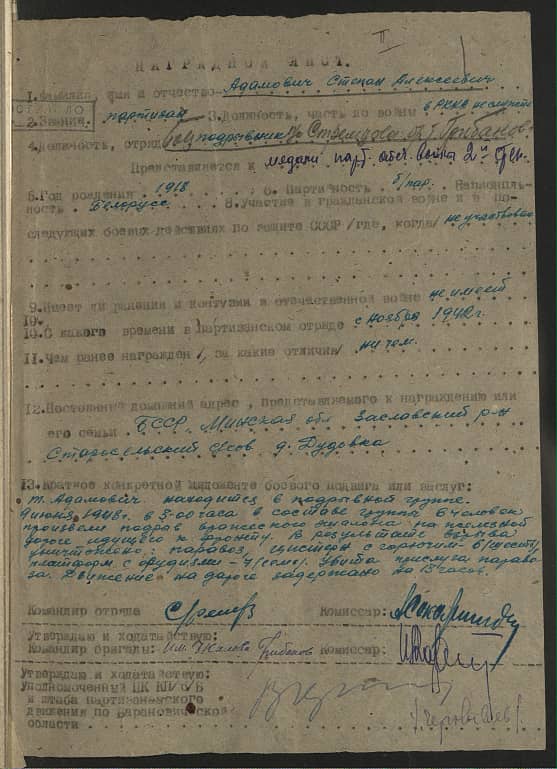 II
НАГРАДНОЙ ЛИСТ.
1. Фамилия, имя и отчество Адамович Степан Алексеевич
2. Звание. партизан 3. Должность, часть до войны в РККА не служил
4. Должность, отряд боец подрывник
Представляется к медали парт. отеч. войны 2й степ.
5. Год рождения 1918 6. Партийность б/пар. Националь-
ность Белорусс. 8. Участие в гражданской войне и в по-
следующих боевых действиях по защите СССР /где, когда/ не участвовал
9. Имеет ли ранения и контузии в отечественной войне не имеет
10.
10. С какого времени в партизанском отряде с ноября 1942 г.
11. Чем ранее награжден /, за какие отличия/ ничем.
12. Постоянный домашний адрес, представляемого к награждению или
его семьи. БССР Минская обл Заславский р-н
Старосельский с/сов д. Дудовка
13. Краткое конкретной изложение боевого подвига или заслуг:
т. Адамович находится в подрывной группе.
9 июня 1943 г. в 3-00 часа в составе группы 6 человек
произвели подрыв вражеского эшелона на железной
дороге идущего к фронту. В результате взрыва
уничтожено: паровоз, цистерн с горючим - 6 (шесть)
платформ с орудиями - 7 (семь). Убита прислуга парово-
за. Движение на дороге задержано на 13 часов.
Командир отряда Комиссар:
Утверждаю и ходатайствую:
Командир бригады: Им. Чкалова Грибанов Комиссар:
Утверждаю и ходатайствую:
Уполномоченный ЦК КП/б/Б
и штаба партизанского
движения по Барановичской
области
/Чернышев/.